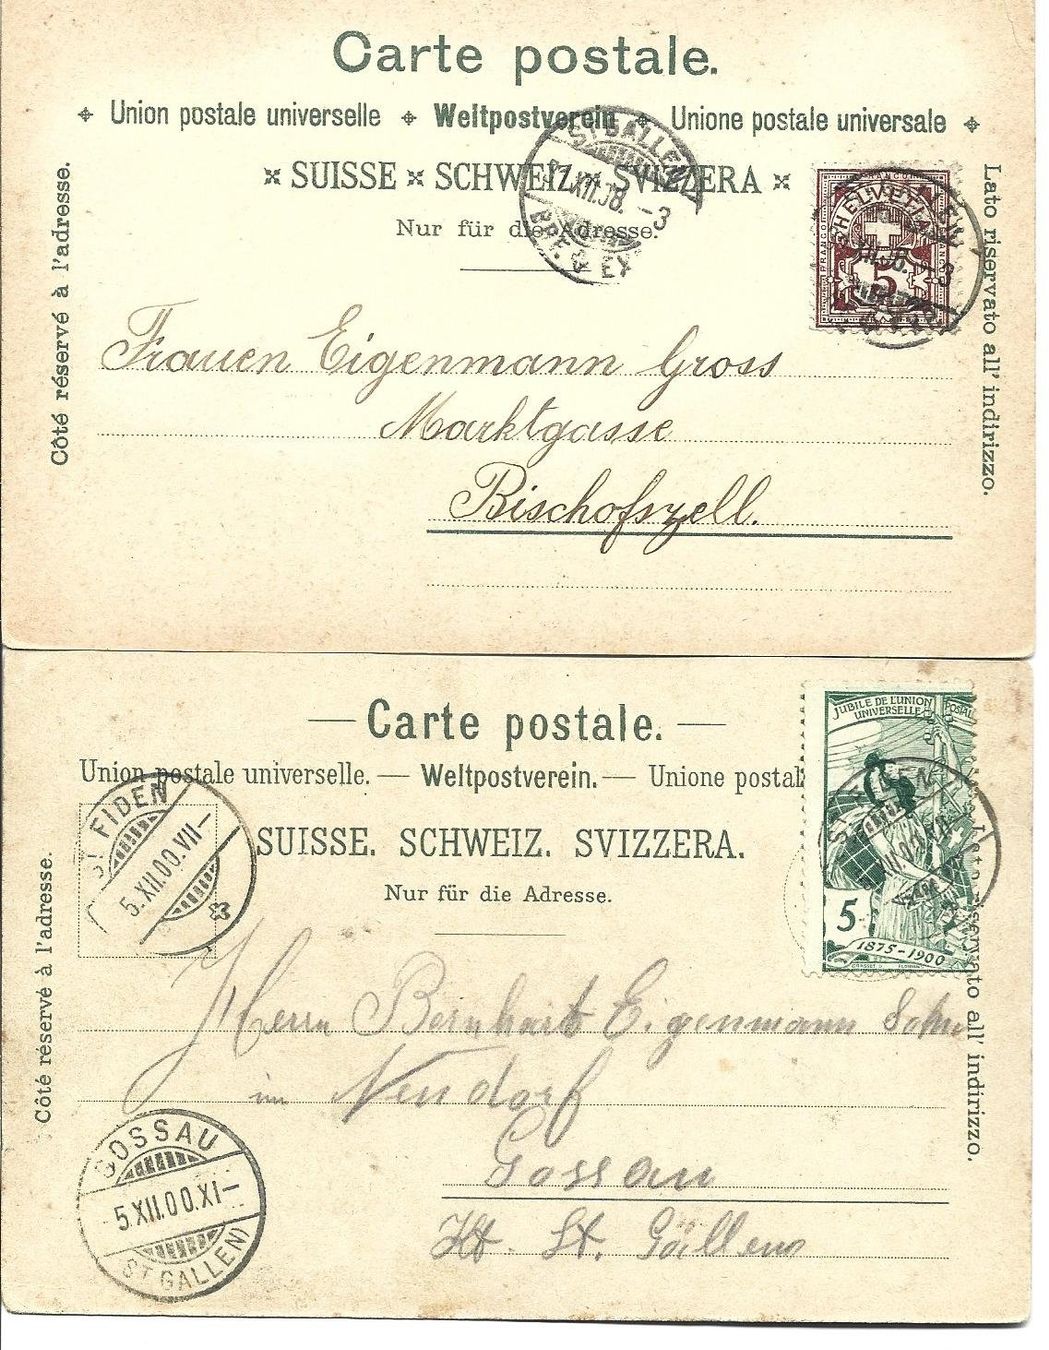 Carte postale.
Union postale universelle Weltpostverein Unione postale universale
SUISSE SCHWEIZ SVIZZERA
Nur für die Adresse.
Côté réservé à l'adresse.
Lato riservato all' indirizzo.
ST GALLEN
XII.98. -3
BRF. & EX
FRANCO
HELVETIA
5
Frauen Eigenmann Gross
Marktgasse
Bischofszell.
Carte postale.
Union postale universelle. — Weltpostverein. — Unione postal
SUISSE. SCHWEIZ. SVIZZERA.
Nur für die Adresse.
Côté réservé à l'adresse.
riservato all' indirizzo.
ST FIDEN
5.XII.00.VII-
JUBILÉ DE L'UNION POSTALE
UNIVERSELLE
5
1875-1900
Herrn Bernhart Eigenmann Sohn
im Neudorf
Gossau
Kt. St. Gallen
GOSSAU
5.XII.00.XI-
(ST GALLEN)